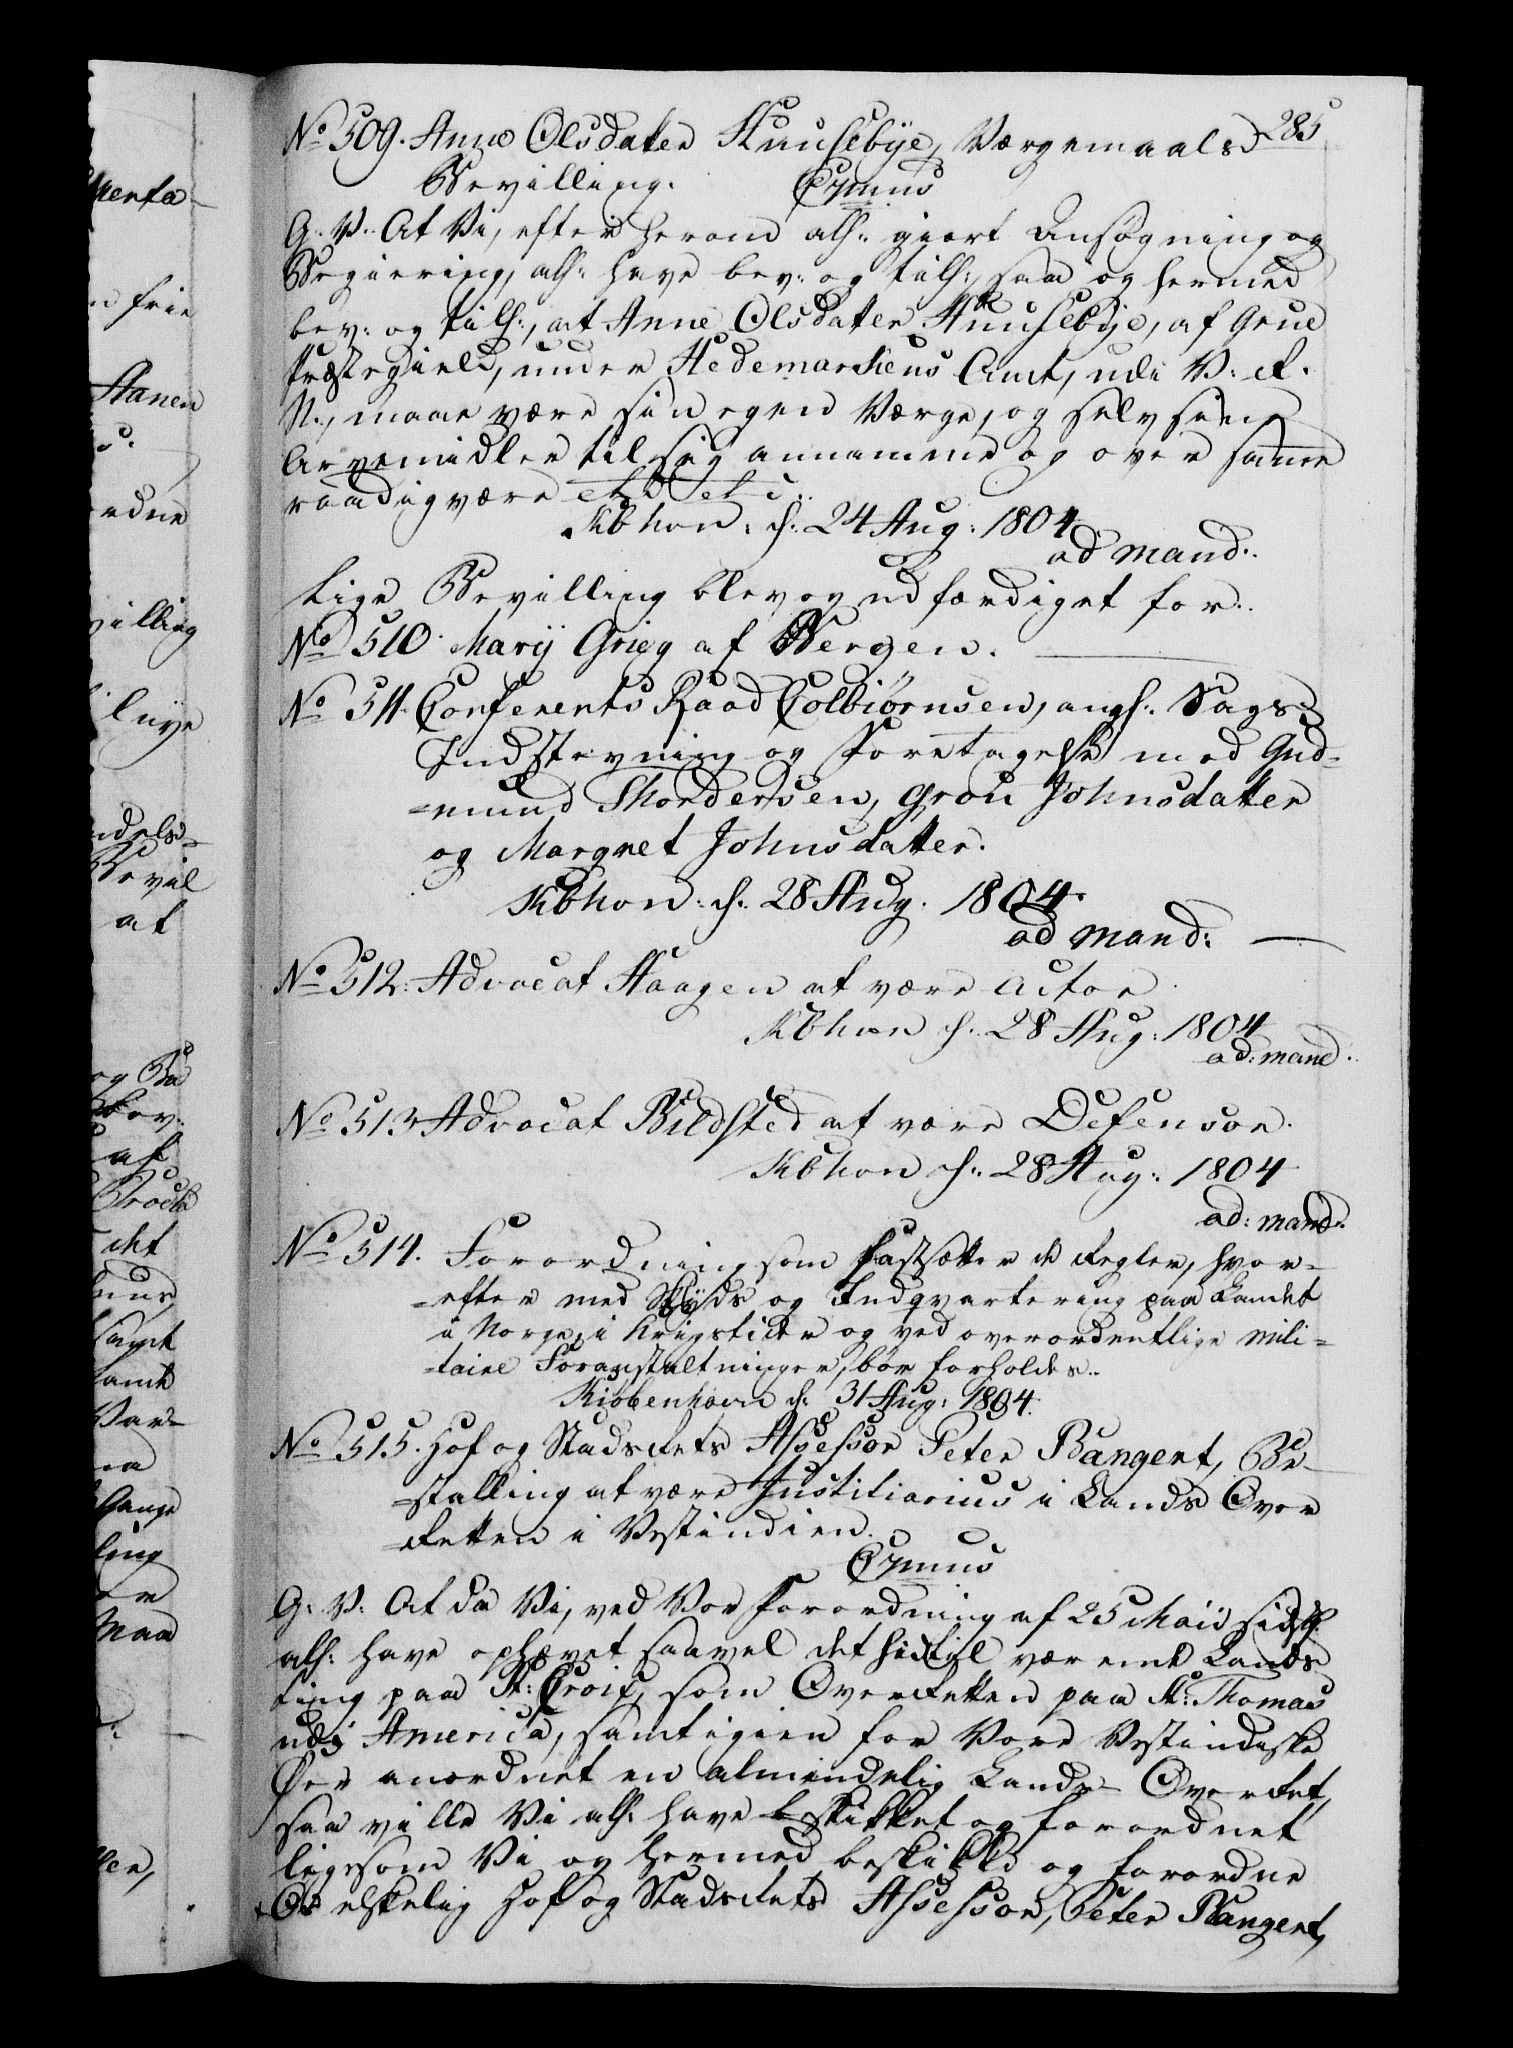 285
No 509. Anne Olsdatter Huusebÿe, Værgemaals
Bevilling. C7mus
G. V. At Vi, efter herom alh: giort Ansøgning og
Begiering, alh: have bev: og tilh:, saa og hermed
bev: og tilh:, at Anne Olsdatter Huusebÿe, af Grue
Præstegield, under Hedemarkens Amt, udi V: R.
N., maae være sin egen Værge, og selv sine
Arvemidler til sig annamme og over same
raadig være etc etc:
Kbhvn: d: 24 Aug: 1804
ad mand:
Lige Bevilling blev og udfærdiget for:
No 510. Marÿ Grieg af Bergen.
No 511. Conferents Raad Colbiørnsen, angh: Sags
Indstevning og Foretagelse mod Gud-
=mund Skordersen, Grou Johnsdatter
og Margret Johnsdatter.
Kbhvn: d: 28 Aug. 1804.
ad mand:
No 512: Advocat Haagen at være Actor
Kbhvn d: 28 Aug: 1804
ad: mand.
No 513 Advocat Bildsted at være Defensor.
Kbhvn d: 28 Aug: 1804
ad: mand:
No 514. Forordning som fastsætter de Regler, hvor-
=efter med Skÿds og Indqvartering paa Landet
i Norge, i Krigstider og ved overordentlige mili=
=taire Foranstaltninger, bør forholdes.
Kiøbenhavn d: 31 Aug: 1804.
No 515. Hof og Stadsrets Assessor Peter Bangert, Be-
=stalling at være Justitiarius i Lands Over
=Retten i Vestindien.
C7mus
G: V: At da Vi, ved Vor Forordning af 25 Maii sidstl:
alh: have ophævet saavel det hidtil værende Lands
ting paa St: Croix, som Overretten paa St: Thomas
udi America, samt igien for Vore Vestindiske
Øer anordnet en almindelig Lands-Overret,
saa ville Vi alh: have beskikket og forordnet
ligesom Vi og hermed beskikke og forordne
Os elskelig Hof og Stadsrets Assessor, Peter Bangert,